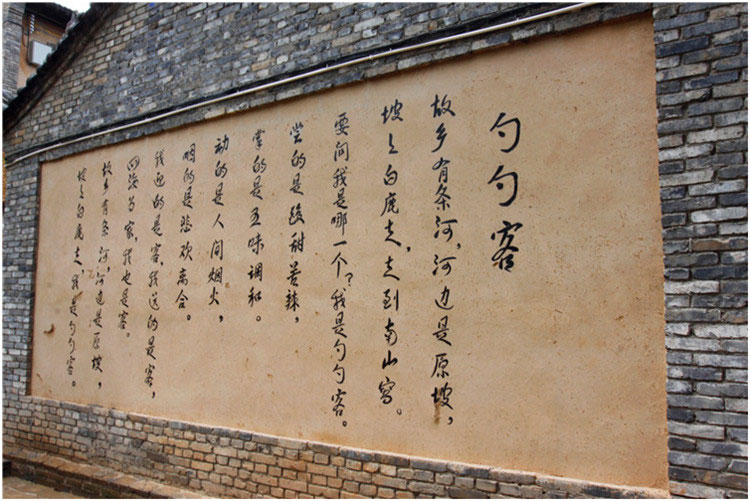 勺勺客
故乡有条河,河边是原坡,
坡上白鹿走,走到南山窝。
要问我是哪一个?我是勺勺客。
尝的是酸甜苦辣,
掌的是五味调和。
动的是人间烟火,
咽的是悲欢离合。
我迎的是客,我送的是客,
四海为家,我也是客。
故乡有条河,河边是原坡,
坡上白鹿走,我是勺勺客。